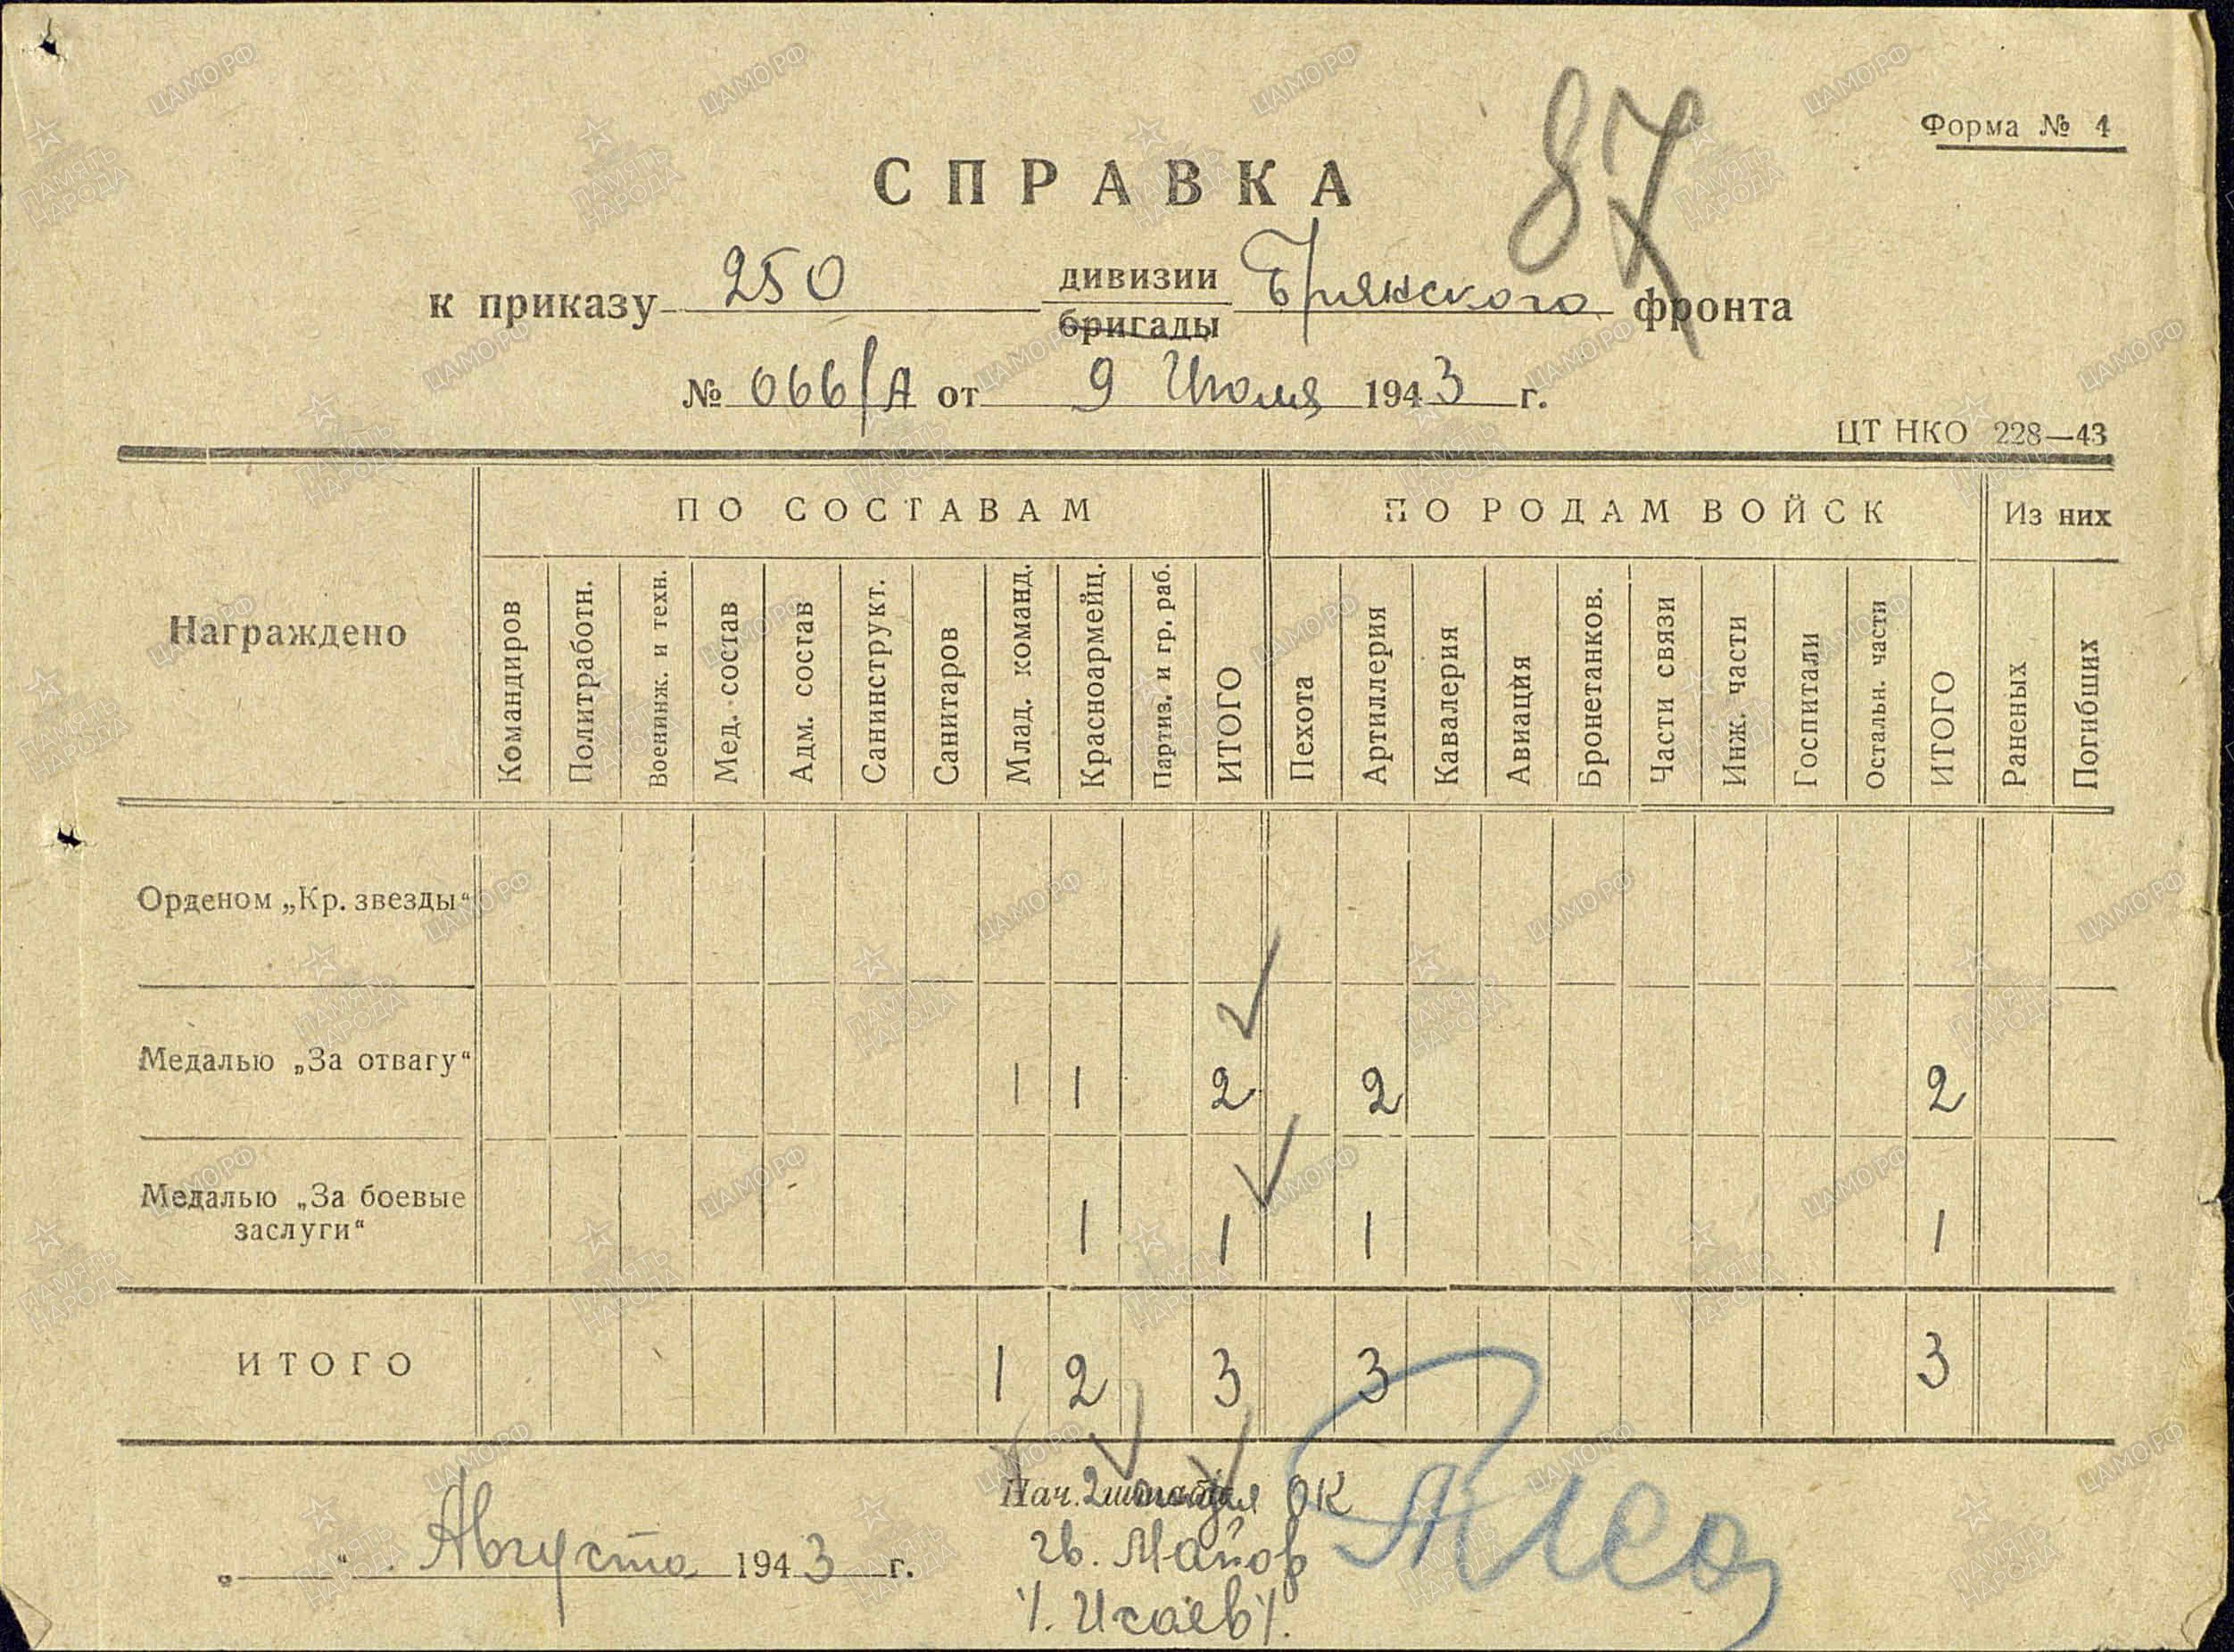 87
Форма № 4
СПРАВКА
к приказу 250 дивизии Брянского фронта
бригады
№ 066/А от 9 Июля 1943 г.
ЦТ НКО 228—43
Награждено
ПО СОСТАВАМ
ПО РОДАМ ВОЙСК
Из них
Командиров
Политработн.
Военинж. и техн.
Мед. состав
Адм. состав
Санинструкт.
Санитаров
Млад. команд.
Красноармейц.
Партиз. и гр. раб.
ИТОГО
Пехота
Артиллерия
Кавалерия
Авиация
Бронетанков.
Части связи
Инж. части
Госпитали
Остальн. части
ИТОГО
Раненых
Погибших
Орденом „Кр. звезды“
Медалью „За отвагу“ 1 1 2 2 2
Медалью „За боевые
заслуги“ 1 1 1 1
ИТОГО 1 2 3 3 3
Нач. 2 ОК
„ “ Августа 1943 г.
гв. Майор
/. Исаев /.
ЦАМО.РФ
ПАМЯТЬ НАРОДА